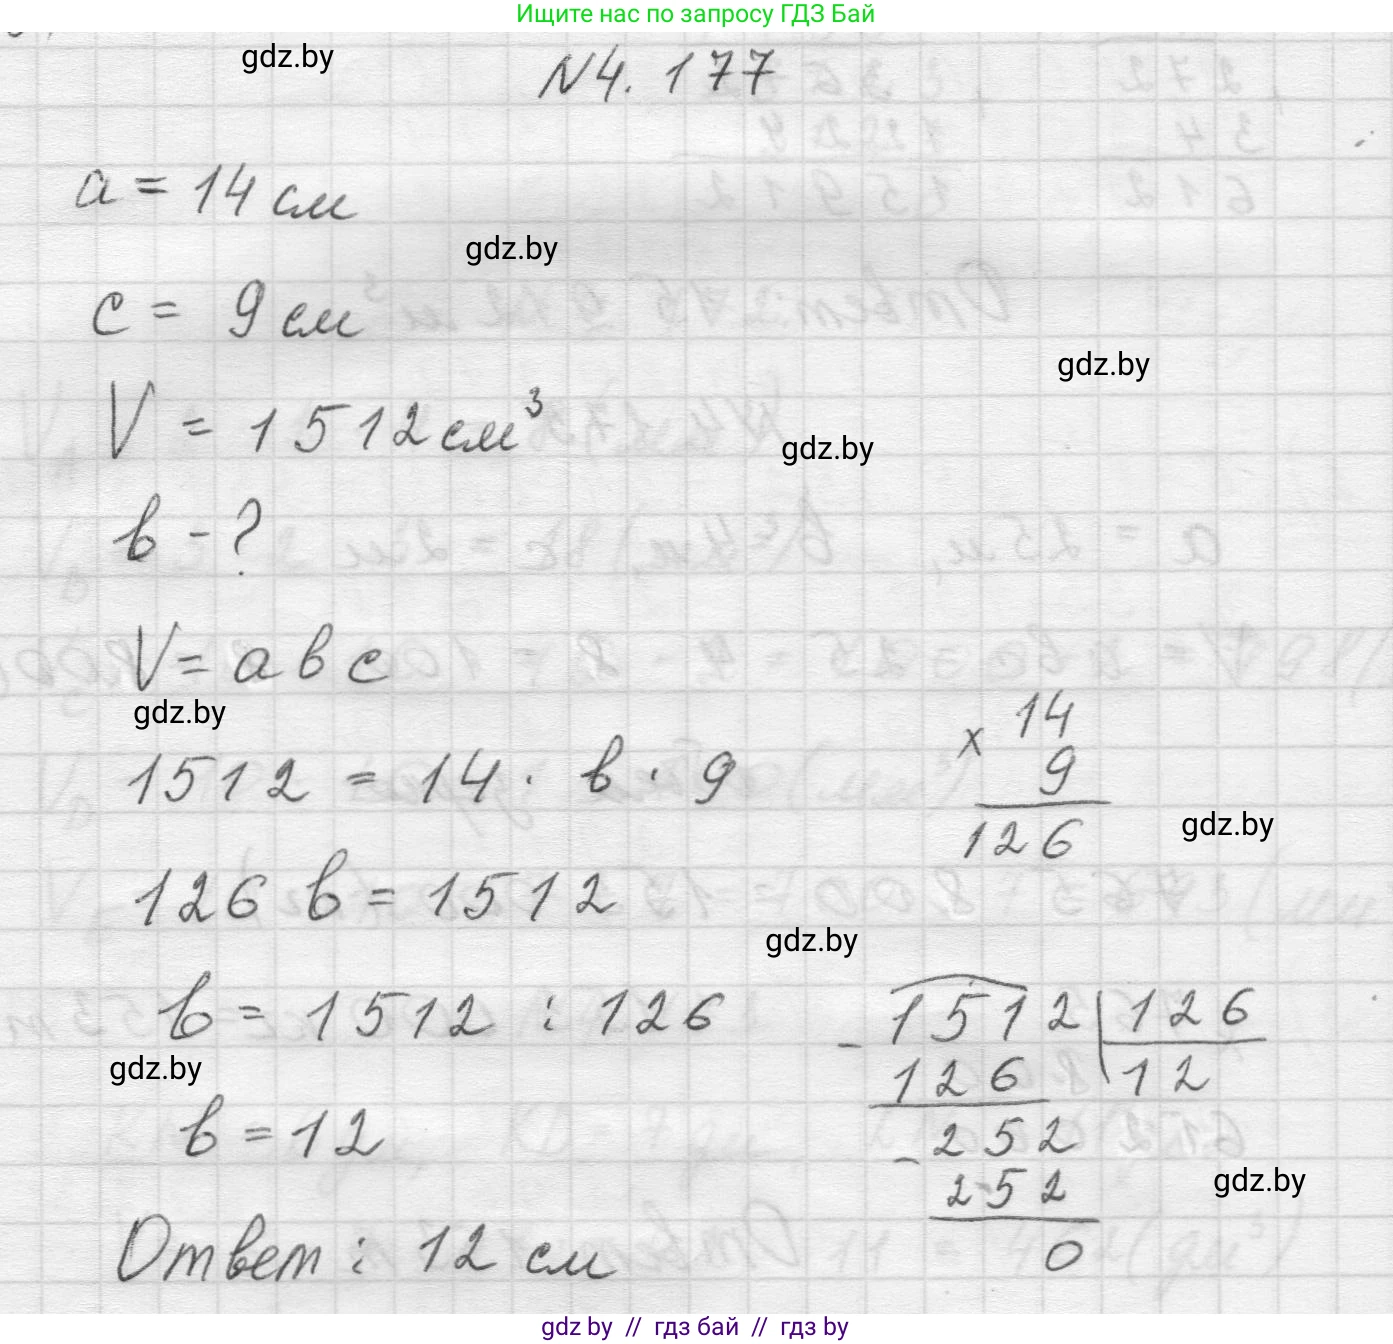 Ищите нас по запросу ГДЗ Бай
gdz.by
№4.177
a = 14 см
gdz.by
c = 9 см
gdz.by
V = 1512 см³
gdz.by
b - ?
V = a b c
gdz.by
1512 = 14 · b · 9
× 14
9
126
gdz.by
126 b = 1512
gdz.by
b = 1512 : 126
- 1512 | 126
126 | 12
gdz.by
b = 12
- 252
252
gdz.by
0
Ответ: 12 см
gdz.by // гдз бай // гдз by